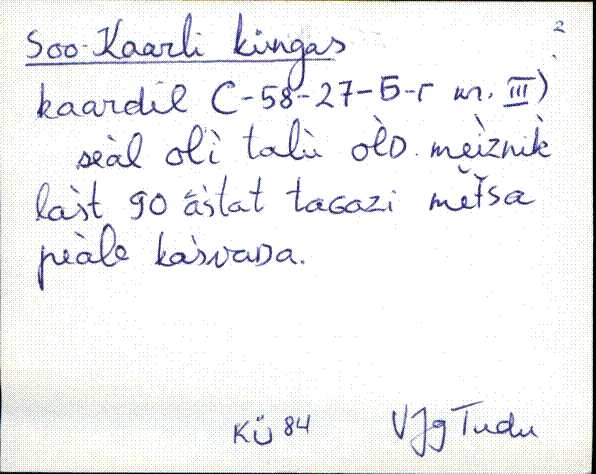 2
Soo-Kaarli kingas
kaardil C-58-27-Б-г nr. III)
seàl olì talù òlD. mèiznik̀
làst 90 àstat taGazi mètsa
peàle kàsvaDa.
KÜ 84 VJg Tudu